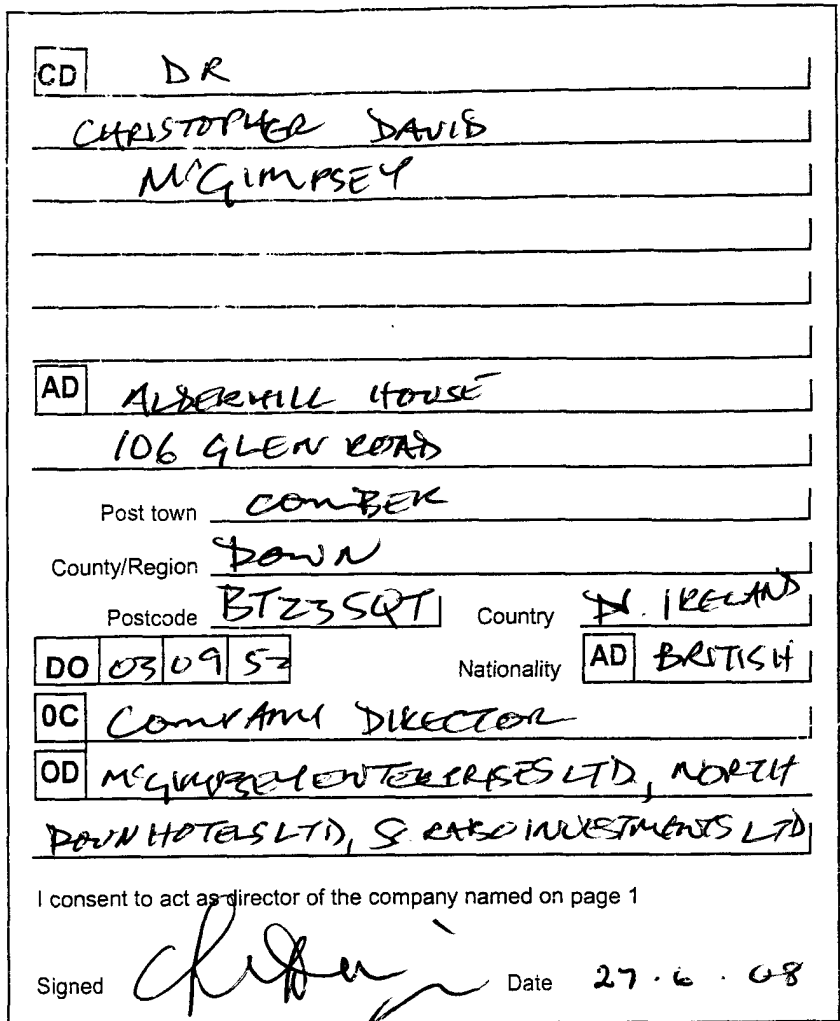 CD DR
CHRISTOPHER DAVID
McGIMPSEY
AD ALDERHILL HOUSE
106 GLEN ROAD
Post town COMBER
County/Region DOWN
Postcode BT23 5QT Country N. IRELAND
DO 03 09 52 Nationality AD BRITISH
0C COMPANY DIRECTOR
OD McGIMPSEY ENTERPRISES LTD, NORTH
DOWN HOTELS LTD, INVESTMENTS LTD
I consent to act as director of the company named on page 1
Signed Date 27.6.08